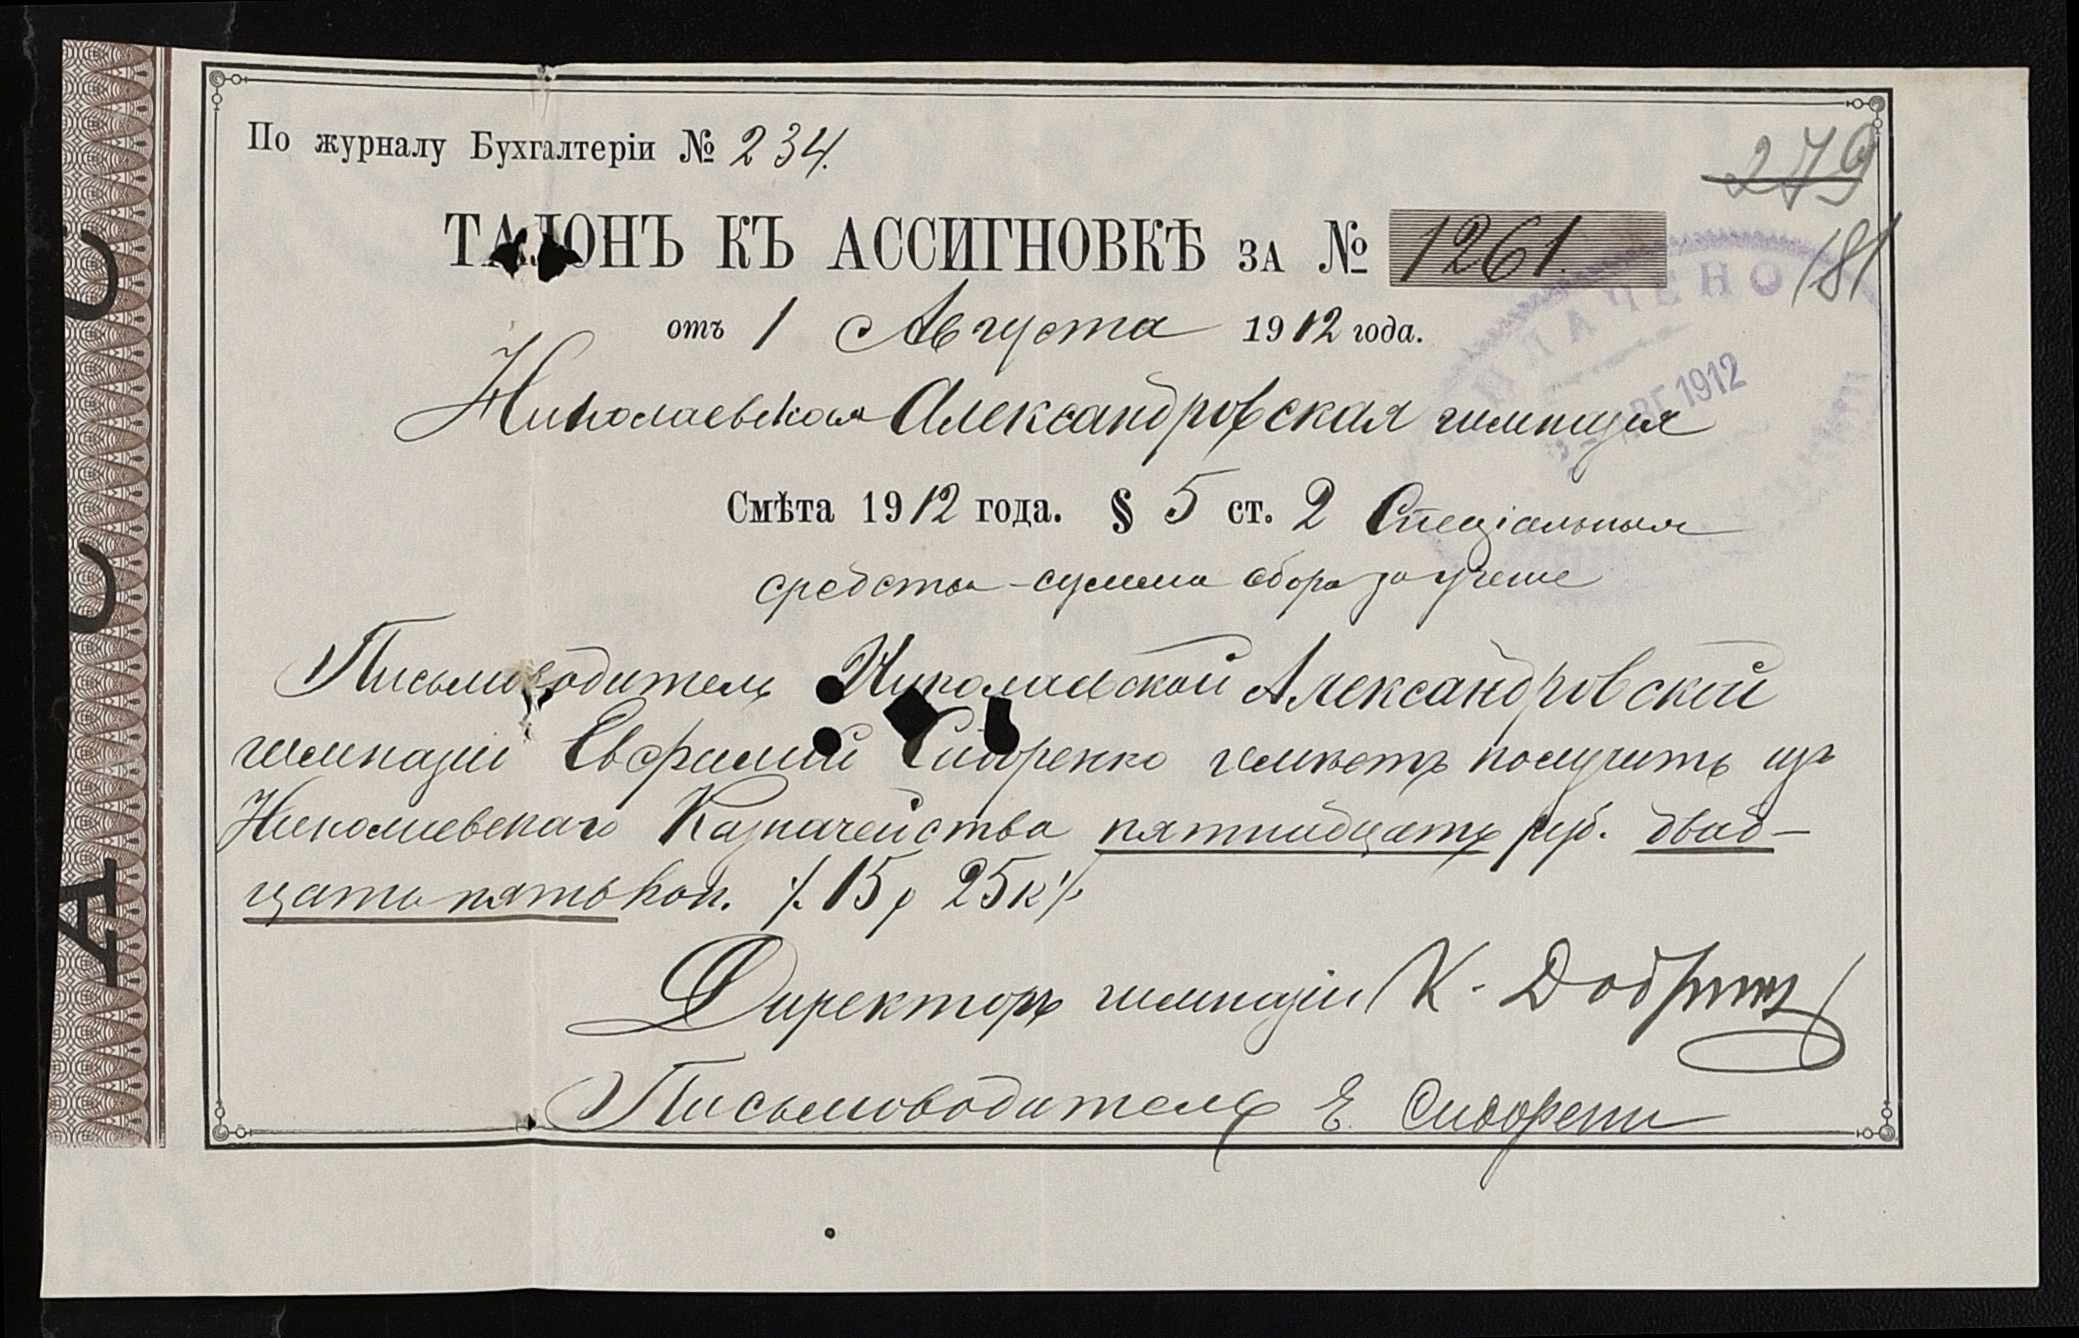 По журналу Бухгалтеріи № 234.
279
ТАЛОНЪ КЪ АССИГНОВКѢ ЗА № 1261.
181
отъ 1 Августа 1912 года.
УПЛАЧЕНО
АВГ 1912
Николаевская Александровская гимназія
Смѣта 1912 года. § 5 ст. 2 Спеціальныя
средства - сумма сбора за ученіе
Письмоводитель Николаевской Александровской
гимназіи Евфимій Сидоренко имѣетъ получить изъ
Николаевскаго Казначейства пятнадцать руб. двад-
цать пять коп. /. 15 р 25 к ./.
Директоръ гимназіи К. Добрин
Письмоводитель Е. Сидоренко
А С С